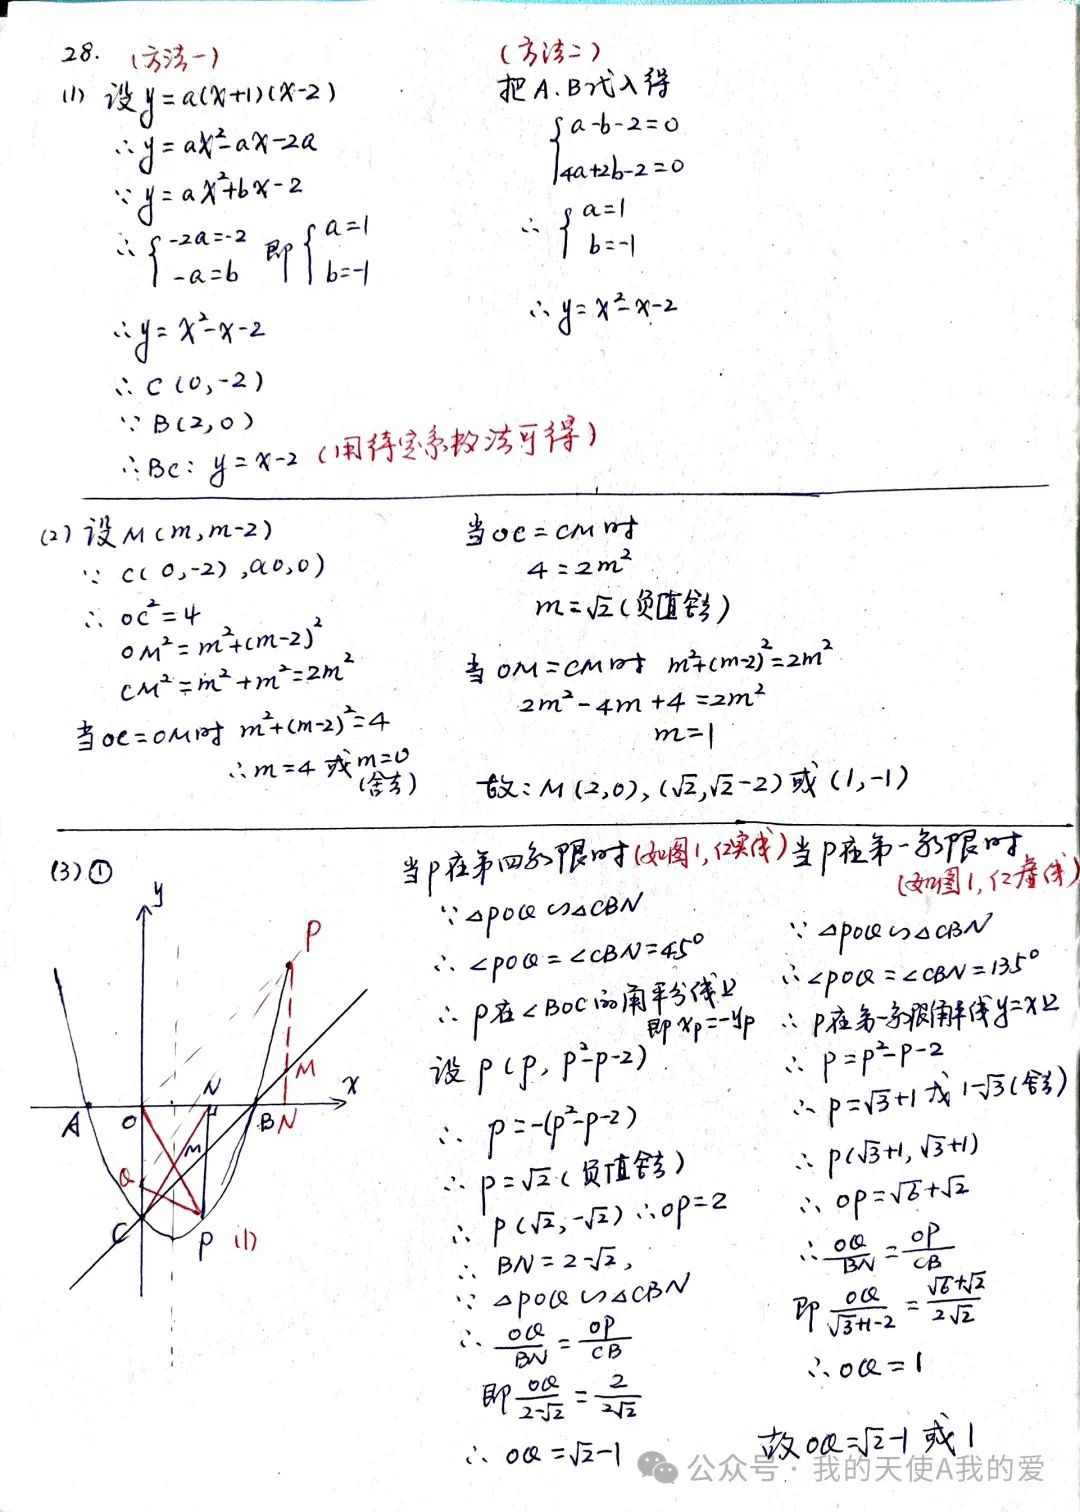 28.
(方法一)
(1) 设y=a(x+1)(x-2)
∴y=ax²-ax-2a
∵y=ax²+bx-2
∴{-2a=-2 即{a=1
-a=b b=-1
∴y=x²-x-2
∴C(0,-2)
∵B(2,0)
∴BC: y=x-2 (用待定系数法可得)
(方法二)
把A.B代入得
{a-b-2=0
4a+2b-2=0
∴{a=1
b=-1
∴y=x²-x-2
(2) 设M(m,m-2)
∵C(0,-2),O(0,0)
∴OC²=4
OM²=m²+(m-2)²
CM²=m²+m²=2m²
当OC=OM时 m²+(m-2)²=4
∴m=4或m=0
(舍去)
当OC=CM时
4=2m²
m=√2(负值舍去)
当OM=CM时 m²+(m-2)²=2m²
2m²-4m+4=2m²
m=1
故:M(2,0),(√2,√2-2)或(1,-1)
(3)①
y
P
M
N
x
A
O
B
N
M
Q
C
P
(1)
当P在第四象限时(如图1,红实线)
∵△POQ∽△CBN
∴∠POQ=∠CBN=45°
∴P在∠BOC的角平分线上
即xp=-yp
设P(p,p²-p-2)
∴p=-(p²-p-2)
∴p=√2(负值舍去)
∴P(√2,-√2)∴OP=2
∴BN=2-√2,
∵△POQ∽△CBN
∴OQ/BN=OP/CB
即OQ/2-√2=2/2√2
∴OQ=√2-1
当P在第一象限时
(如图1,红虚线)
∵△POQ∽△CBN
∴∠POQ=∠CBN=135°
∴P在第一象限角平线y=x上
∴p=p²-p-2
∴p=√3+1或1-√3(舍去)
∴P(√3+1,√3+1)
∴OP=√6+√2
∴OQ/BN=OP/CB
即OQ/√3+1-2=√6+√2/2√2
∴OQ=1
故OQ=√2-1或1
公众号·我的天使A我的爱